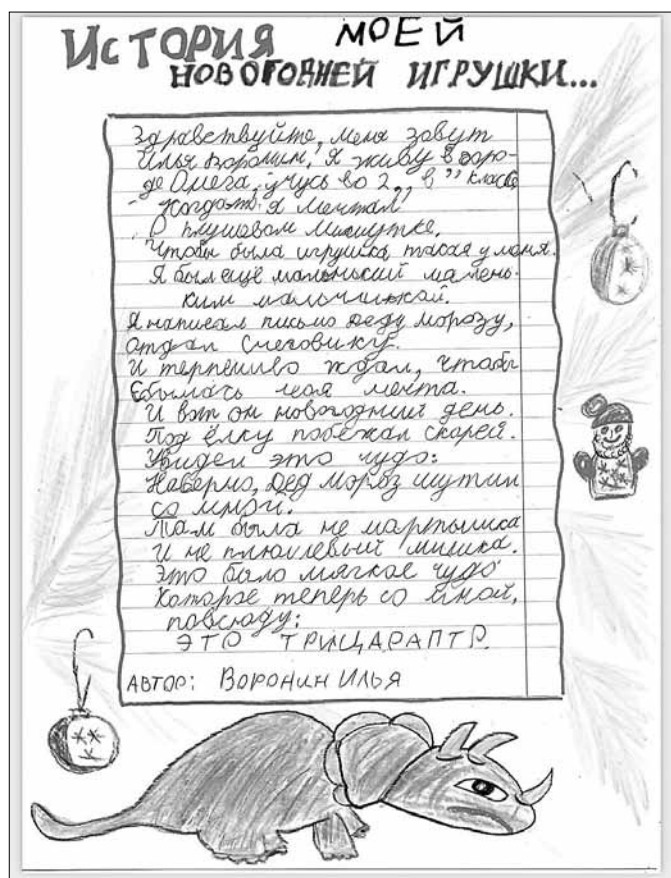 ИСТОРИЯ МОЕЙ
НОВОГОДНЕЙ ИГРУШКИ...
Здравствуйте, меня зовут
Илья Воронин, я живу в горо-
де Онега, учусь во 2 „в” классе
Когда-то я мечтал
О плюшевом мишутке,
Чтобы была игрушка такая у меня.
Я был ещё маленький мален-
ким мальчишкой.
Я написал письмо Деду морозу,
отдал Снеговику.
И терпеливо ждал, чтобы
сбылась моя мечта.
И вот он новогодний день.
Под ёлку побежал скорей.
Увидел это чудо:
Наверно, Дед мороз шутил
со мной.
Там была не мартышка
И не плюшевый мишка.
Это было мягкое чудо
Которое теперь со мной,
повсюду:
ЭТО ТРИЦАРАПТР.
АВТОР: ВОРОНИН ИЛЬЯ